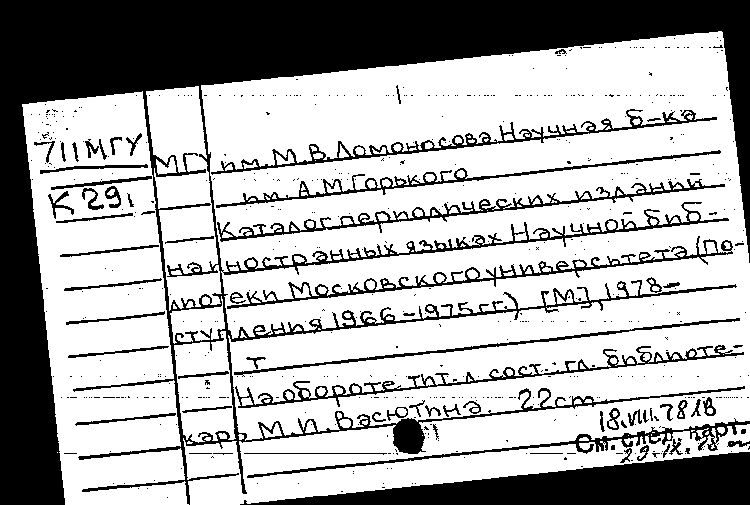 711МГУ
К 291
МГУ им. М.В. Ломоносова. Научная б-ка
им. А.М. Горького
Каталог периодических изданий
на иностранных языках Научной биб-
лиотеки Московского университета (По-
ступления 1966-1975 гг.) [М.], 1978-
т
На обороте тит. л. сост.: гл. библиоте-
карь М.И. Васютина. 22cm.
18.VIII.78 18
См. след. карт.
29.IX.78